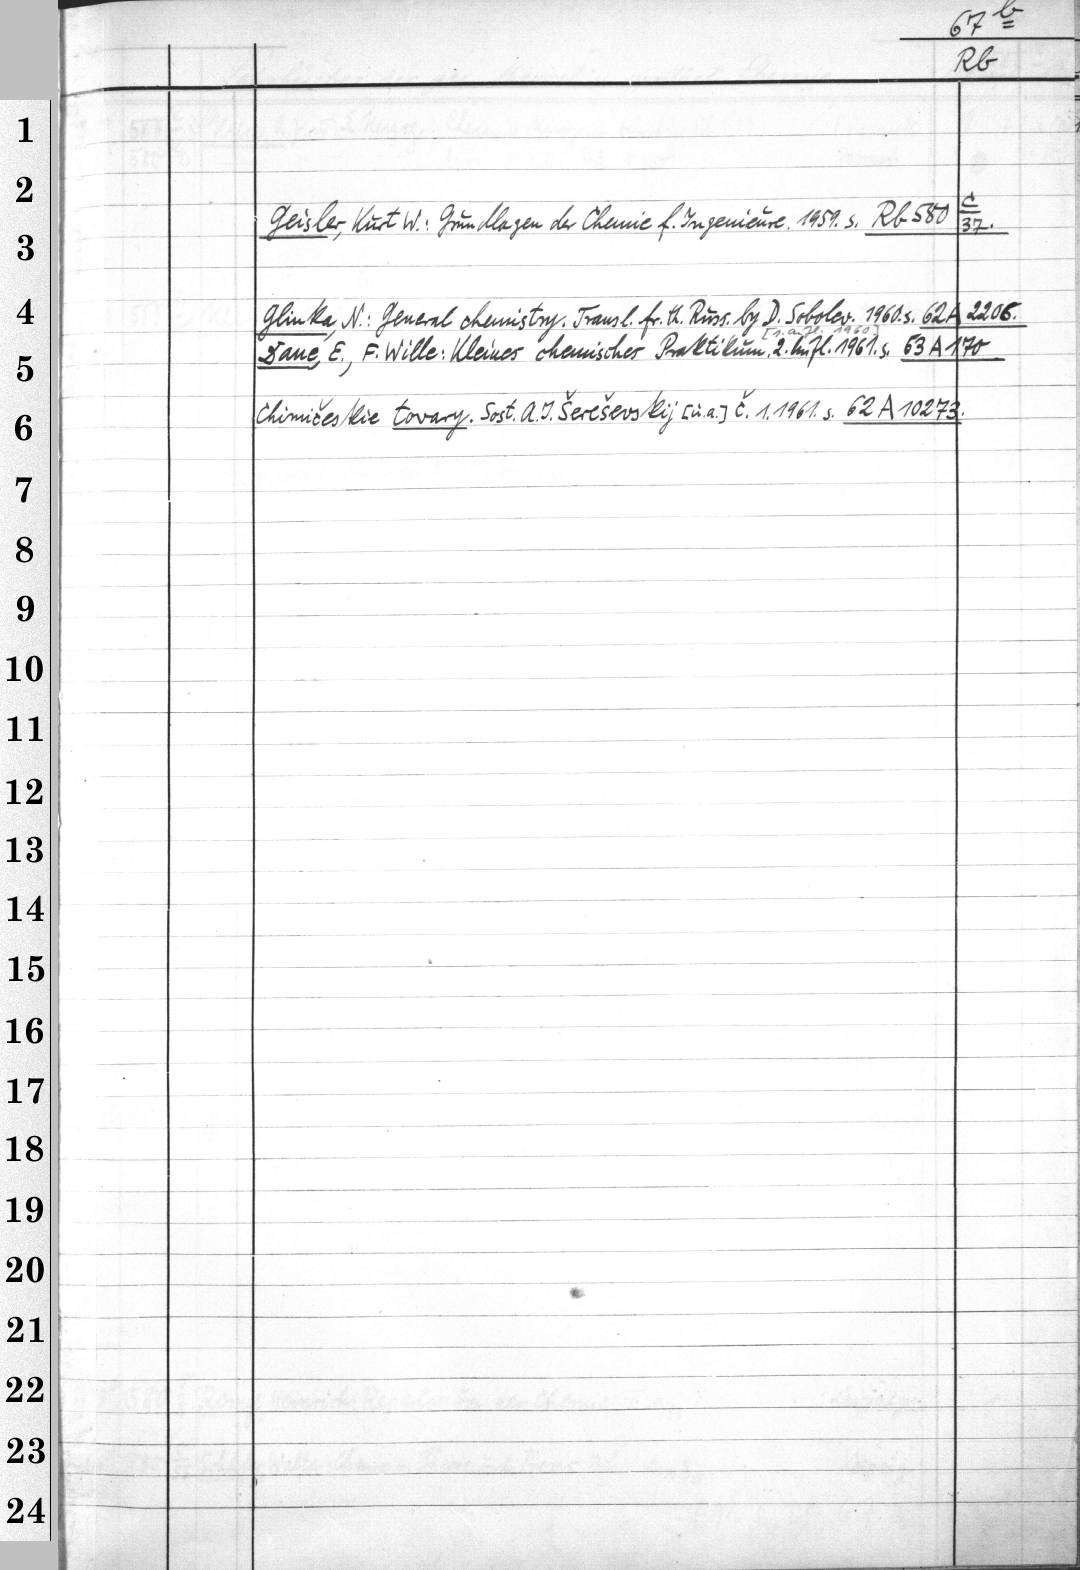 67 b
Rb
1
2
Geisler, Kurt W.: Grundlagen der Chemie f. Ingenieure. 1959. s. Rb 580 c/37.
3
4
Glinka, N.: General chemistry. Transl. fr. th. Russ. by D. Sobolev. 1960. s. 62 A 2206.
[1. Aufl. 1960]
Dane, E., F. Wille: Kleines chemisches Praktikum. 2. Aufl. 1961. s. 63 A 170
5
Chimičeskie tovary. Sost. A. I. Šereševskij [u.a.] č. 1. 1961. s. 62 A 10273.
6
7
8
9
10
11
12
13
14
15
16
17
18
19
20
21
22
23
24